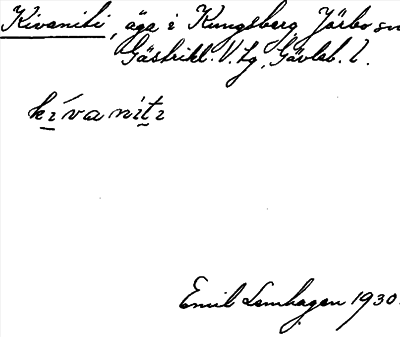 Kivaniti, äga i Kungsberg, Järbo sn
Gästrikl. V. tg, Gävleb. l.
kívaniti
Emil Lemhagen 1930.